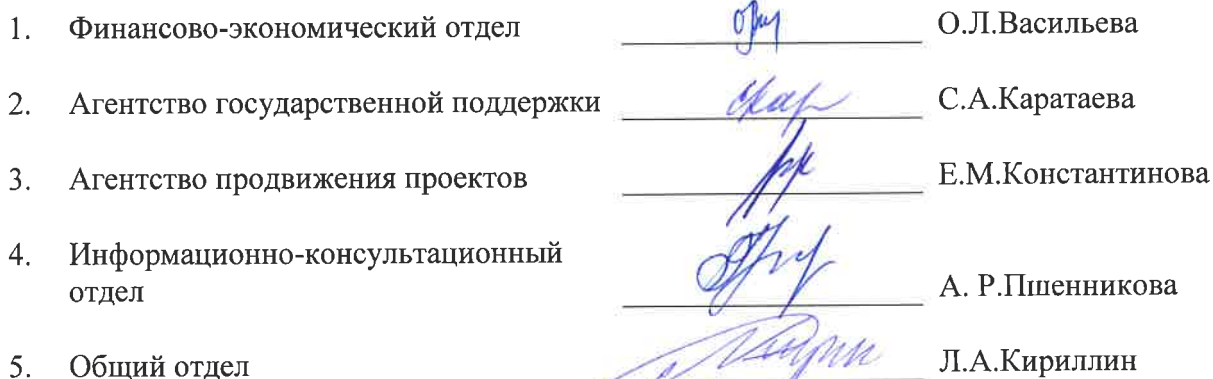 1. Финансово-экономический отдел О.Л.Васильева
2. Агентство государственной поддержки С.А.Каратаева
3. Агентство продвижения проектов Е.М.Константинова
4. Информационно-консультационный
отдел А. Р.Пшенникова
5. Общий отдел Л.А.Кириллин